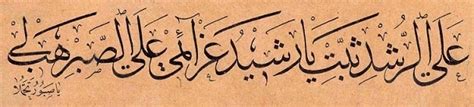 على الرشد ثبت يا رشيد عزائمي على الصبر هب لي
يا صبور تجملا